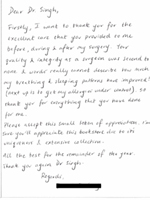 Dear Dr Singh,
Firstly, I want to thank you for the
excellent care that you provided to me
before, during & after my surgery. Your
quality & integrity as a surgeon was second to
none & words really cannot describe how much
my breathing & sleeping patterns have improved!
(just up to get my allergies under control). So
thank you for everything that you have done
for me.
Please accept this small token of appreciation. I'm
sure you'll appreciate this bookstore due to its
uniqueness & extensive selections.
All the best for the remainder of the year.
Thank you again Dr Singh.
Regards,